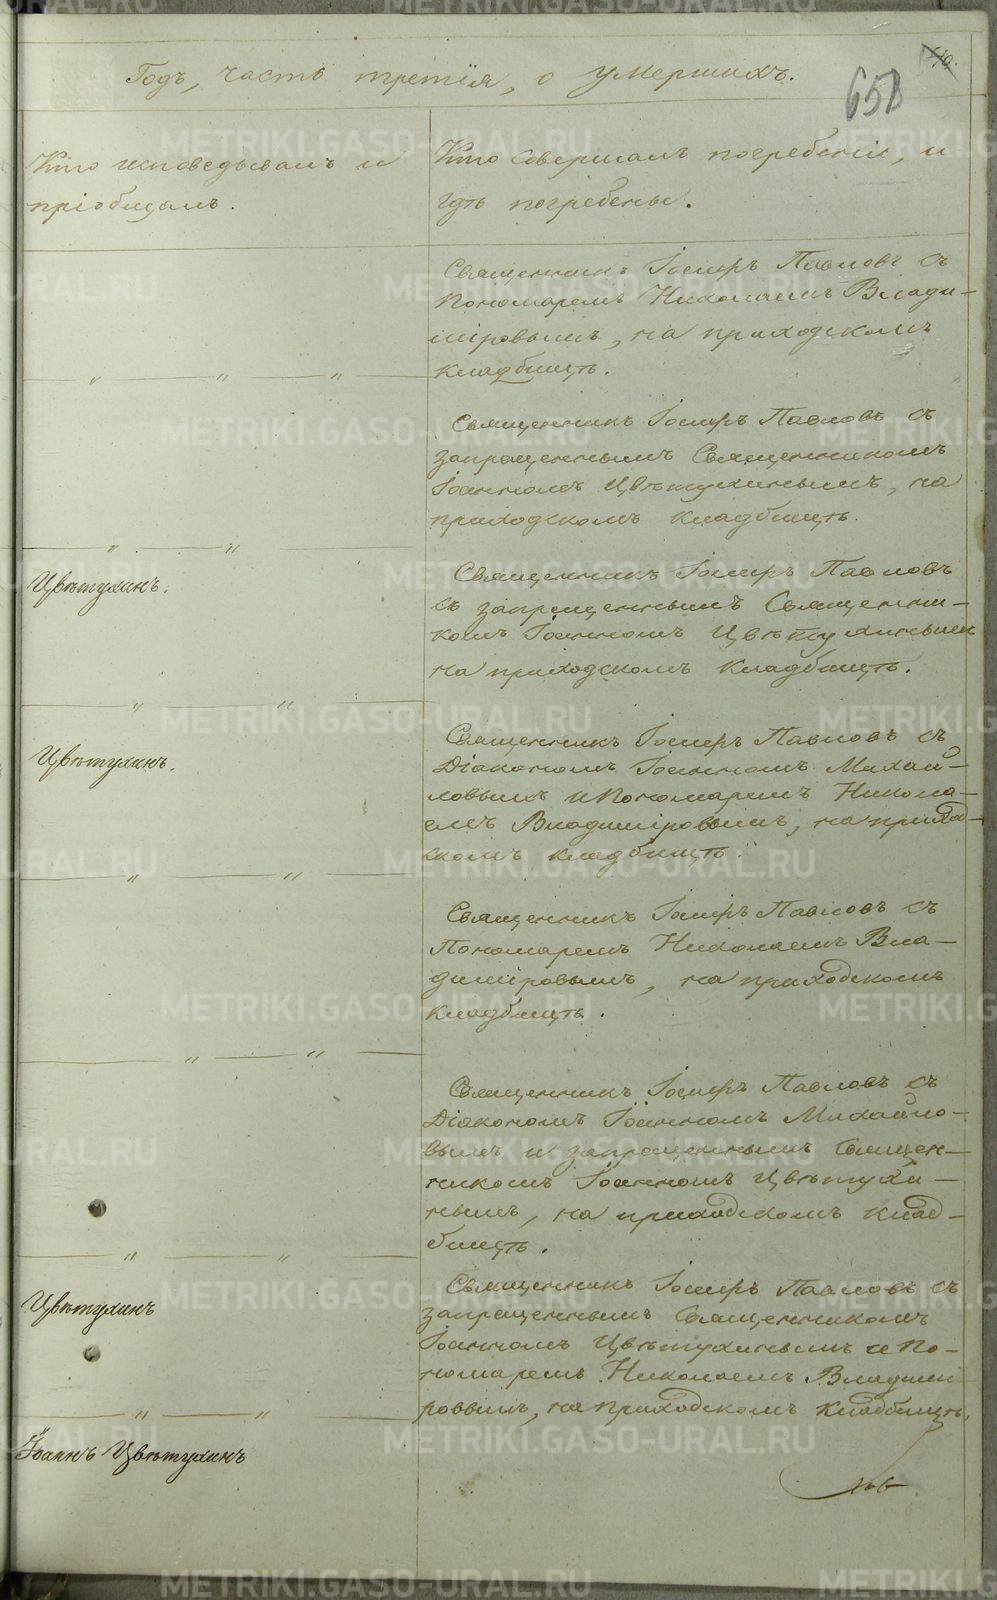 Годъ, часть третія, о умершихъ.
658
Кто исповедывалъ и
пріобщалъ.
Кто совершалъ погребеніе, и
гдѣ погребены.
Священникъ Іосифъ Павловъ съ
Пономаремъ Николаемъ Влади-
міровымъ, на приходскомъ
кладбищѣ.
Священникъ Іосифъ Павловъ съ
запрещеннымъ Священникомъ
Іоанномъ Цвѣтухинымъ, на
приходскомъ кладбищѣ.
Цвѣтухинъ.
Священникъ Іосифъ Павловъ
съ запрещеннымъ Священни-
комъ Іоанномъ Цвѣтухинымъ
на приходскомъ кладбищѣ.
Цвѣтухинъ.
Священникъ Іосифъ Павловъ съ
Діакономъ Іоанномъ Михай-
ловымъ и Пономаремъ Никола-
емъ Владиміровымъ, на приход-
скомъ кладбищѣ.
Священникъ Іосифъ Павловъ съ
Пономаремъ Николаемъ Вла-
диміровымъ, на приходскомъ
кладбищѣ.
Священникъ Іосифъ Павловъ съ
Діакономъ Іоанномъ Михайло-
вымъ и запрещеннымъ Священ-
никомъ Іоанномъ Цвѣтухи-
нымъ, на приходскомъ клад-
бищѣ.
Цвѣтухинъ
Священникъ Іосифъ Павловъ съ
запрещеннымъ Священникомъ
Іоанномъ Цвѣтухинымъ и По-
номаремъ Николаемъ Владими-
ровымъ, на приходскомъ кладбищѣ.
Іоаннъ Цвѣтухинъ
METRIKI.GASO-URAL.RU